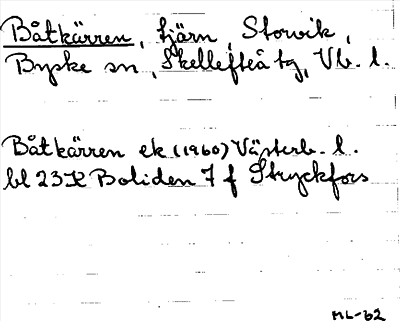 Båtkärren, tjärn, Storvik,
Byske sn, Skellefteå tg, Vb. l.
Båtkärren ek (1960) Västerb. l.
bl 23K Boliden 7 f Stryckfors
ML-62